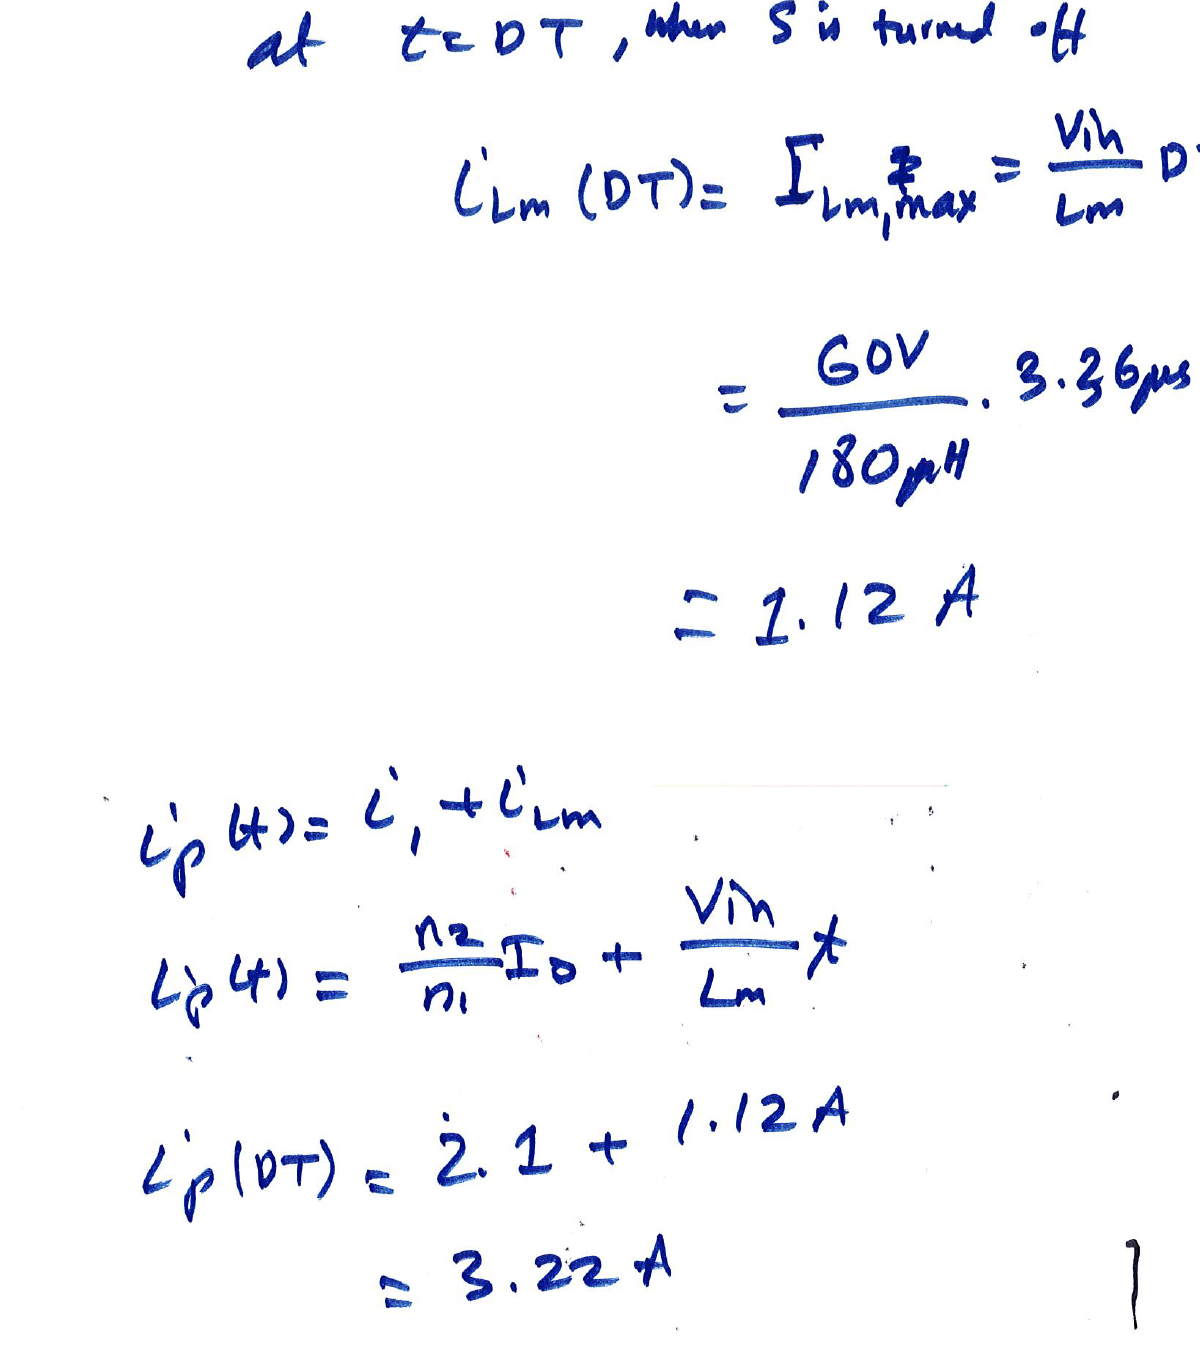 at t=DT, when S is turned off
iLm (DT) = ILm,max = Vin/Lm D
= 60V/180μH . 3.36μs
= 1.12 A
ip(t) = i1 + iLm
ip(t) = n2/n1 Io + Vin/Lm t
ip(DT) = 2.1 + 1.12 A
= 3.22 A